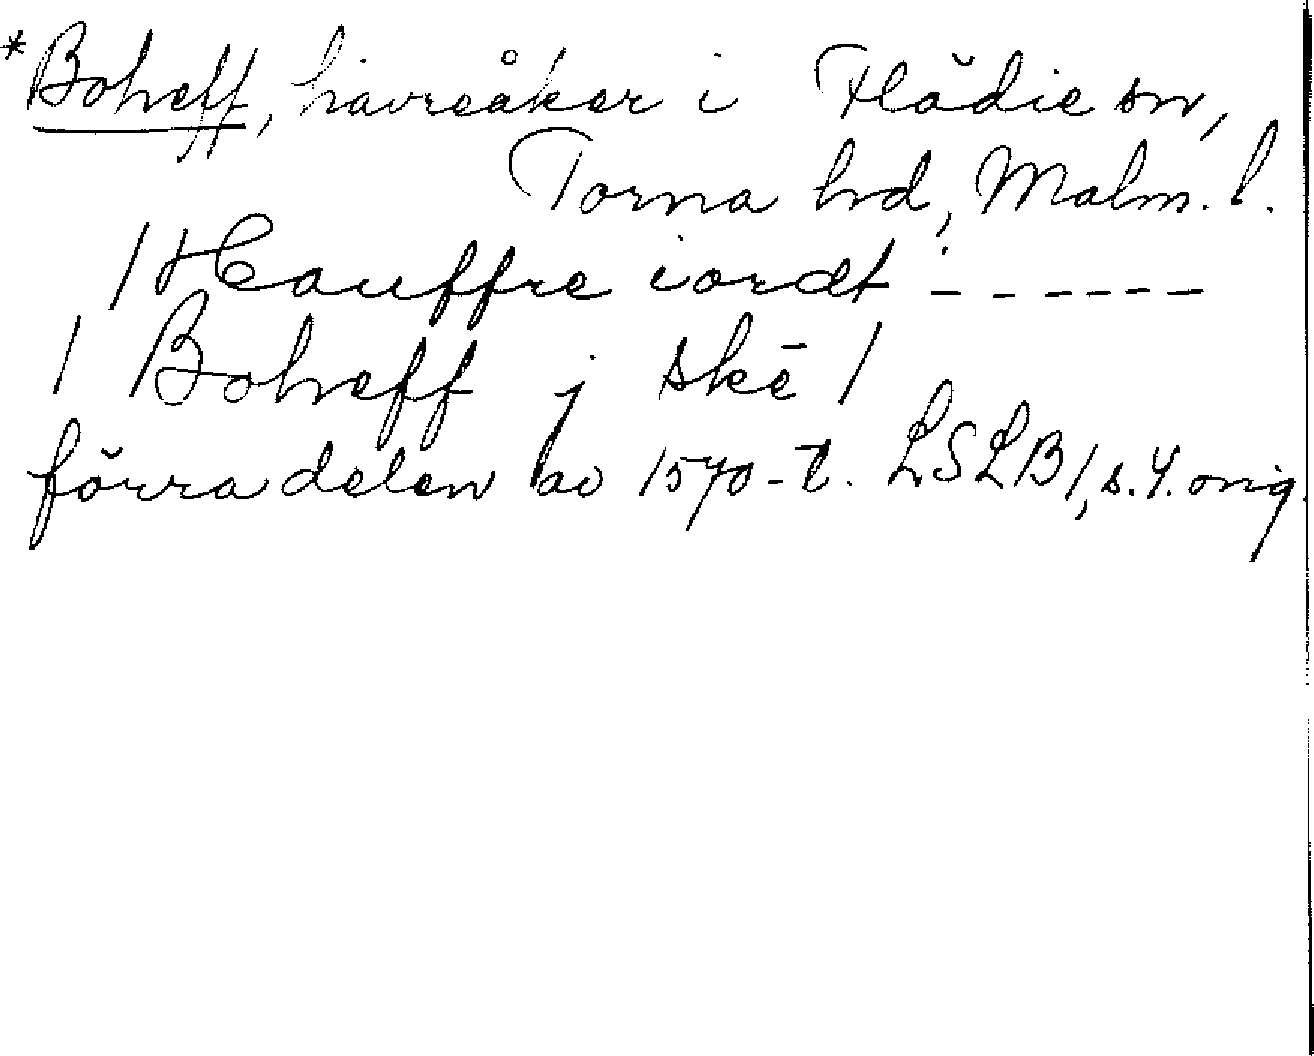 *Boheff, havreåker i Flädie sn,
Torna hrd, Malm. l.
/ Hauffre iordt - - - - - -
/ Boheff j skē /
förra delen av 1570-t. LSLB 1, s. 4. orig.